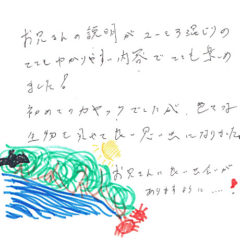 お兄さんの説明がユーモア混じりの
とてもわかりやすい内容でとても楽しめ
ました!
初めてのカヤックでしたが、色々な
生物も見せて良い思い出になりました
お兄さんに良い出会いが
ありますように....!